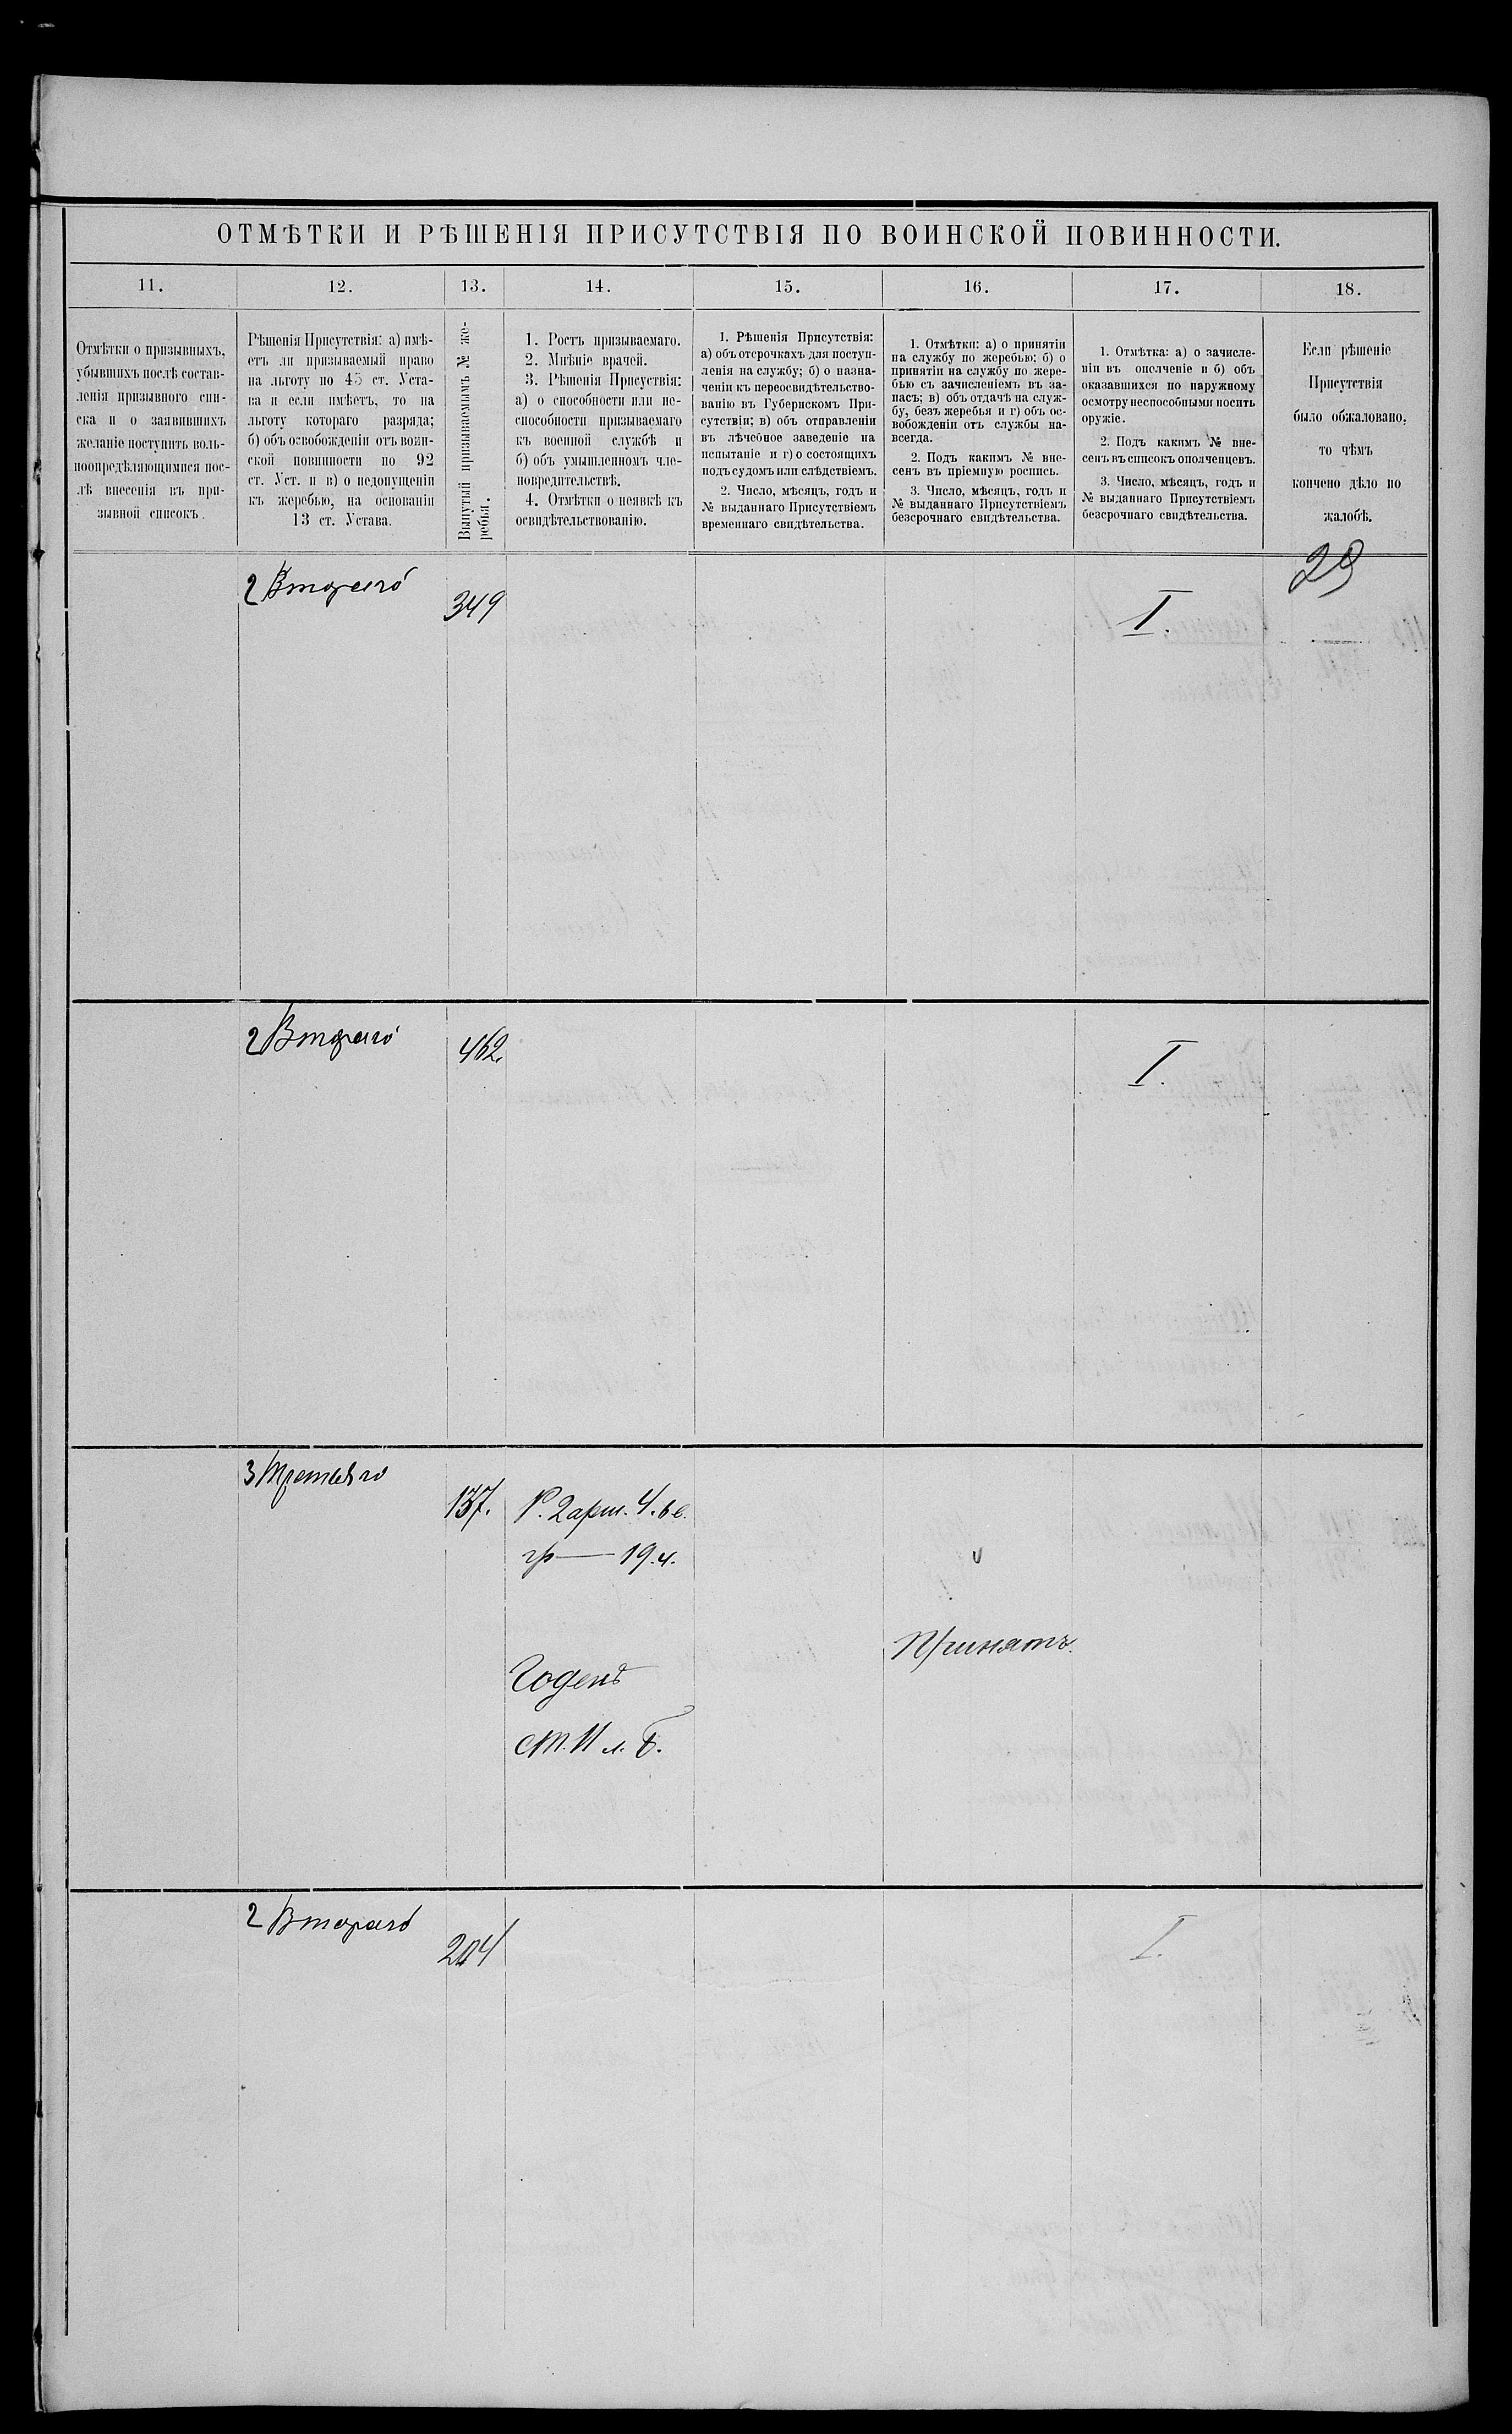 ОТМѢТКИ И РѢШЕНІЯ ПРИСУТСТВІЯ ПО ВОИНСКОЙ ПОВИННОСТИ.
11.
12.
13.
14.
15.
16.
17.
18.
Отмѣтки о призывныхъ,
убывшихъ послѣ состав-
ленія призывного спи-
ска и о заявившихъ
желаніе поступить воль-
ноопредѣляющимися пос-
лѣ внесенія въ при-
зывной списокъ.
Рѣшенія Присутствія: а) имѣ-
етъ ли призываемый право
на льготу по 45 ст. Уста-
ва и если имѣетъ, то на
льготу котораго разряда;
б) объ освобожденіи отъ воин-
ской повинности по 92
ст. Уст. и в) о недопущеніи
къ жеребью, на основаніи
13 ст. Устава.
Вынутый призываемымъ № же-
ребья.
1. Ростъ призываемаго.
2. Мнѣніе врачей.
3. Рѣшенія Присуствія:
а) о способности или не-
способности призываемаго
къ военной службѣ и
б) объ умышленномъ чле-
новредительствѣ.
4. Отмѣтки о неявкѣ къ
освидѣтельствованію.
1. Рѣшенія Присутствія:
а) объ отсрочкахъ для поступ-
ленія на службу; б) о назна-
ченіи къ переосвидѣтельство-
ванію въ Губернскомъ При-
сутствіи; в) объ отправленіи
въ лѣчебное заведеніе на
испытаніе и г) о состоящихъ
подъ судомъ или слѣдствіемъ.
2. Число, мѣсяцъ, годъ и
№ выданнаго Присутствіемъ
временнаго свидѣтельства.
1. Отмѣтки: а) о принятіи
на службу по жеребью; б) о
принятіи на службу по жере-
бью съ зачисленіемъ въ за-
пасъ; в) объ отдачѣ на служ-
бу, безъ жеребья и г) объ ос-
вобожденіи отъ службы на-
всегда.
2. Подъ какимъ № вне-
сенъ въ пріемную роспись.
3. Число, мѣсяцъ, годъ и
№ выданнаго Присутствіемъ
безсрочнаго свидѣтельства.
1. Отмѣтка: а) о зачисле-
ніи въ ополченіе и б) объ
оказавшихся по наружному
осмотру неспособными носить
оружіе.
2. Подъ какимъ № вне-
сенъ въ списокъ ополченцевъ.
3. Число, мѣсяцъ, годъ и
№ выданнаго Присутствіемъ
безсрочнаго свидѣтельства.
Если рѣшеніе
Присутствія
было обжаловано,
то чѣмъ
кончено дѣло по
жалобѣ.
29
2 Втораго
349
I.
2 Втораго
462.
I.
3 Третьяго
137.
Р. 2 арш. 4. в.
гр — 19. ч.
Годенъ
ст. II л. Б.
Принятъ.
2 Втораго
204
I.